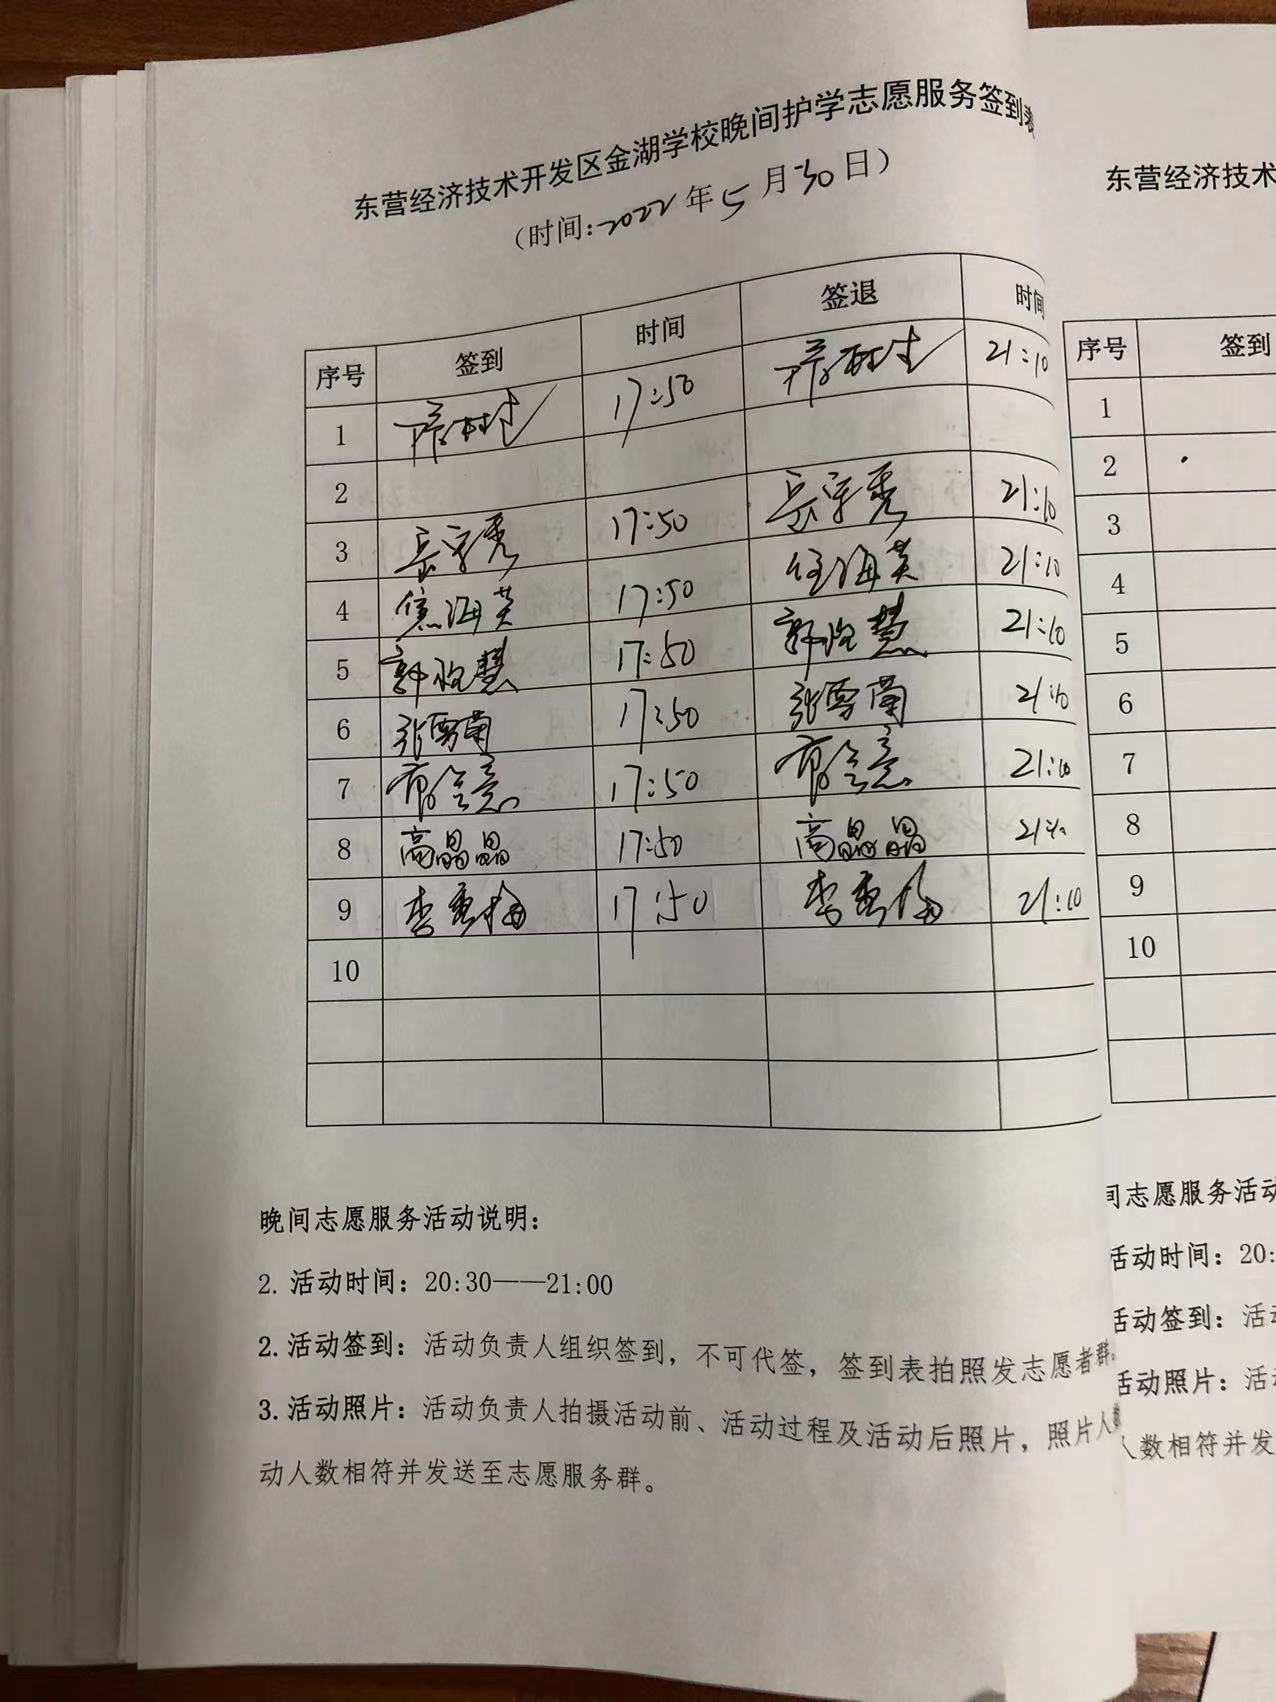 东营经济技术开发区金湖学校晚间护学志愿服务签到表
(时间:2022年5月30日)
序号 签到 时间 签退 时间
1 17:50 21:10
2
3 岳宗秀 17:50 岳宗秀 21:10
4 焦海英 17:50 焦海英 21:10
5 17:50 21:10
6 张雪菊 17:50 张雪菊 21:10
7 17:50 21:10
8 高晶晶 17:50 高晶晶 21:10
9 李秀梅 17:50 李秀梅 21:10
10
晚间志愿服务活动说明:
2. 活动时间:20:30——21:00
2. 活动签到:活动负责人组织签到,不可代签,签到表拍照发志愿者群。
3. 活动照片:活动负责人拍摄活动前、活动过程及活动后照片,照片人
动人数相符并发送至志愿服务群。
东营经济技术
序号 签到
1
2
3
4
5
6
7
8
9
10
间志愿服务活动
活动时间:20:
活动签到:活
活动照片:活
人数相符并发